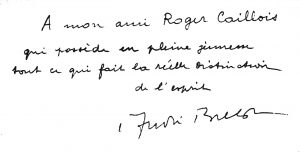 A mon ami Roger Caillois
qui possède en pleine jeunesse
tout ce qui fait la réelle distinction
de l'esprit
André Breton